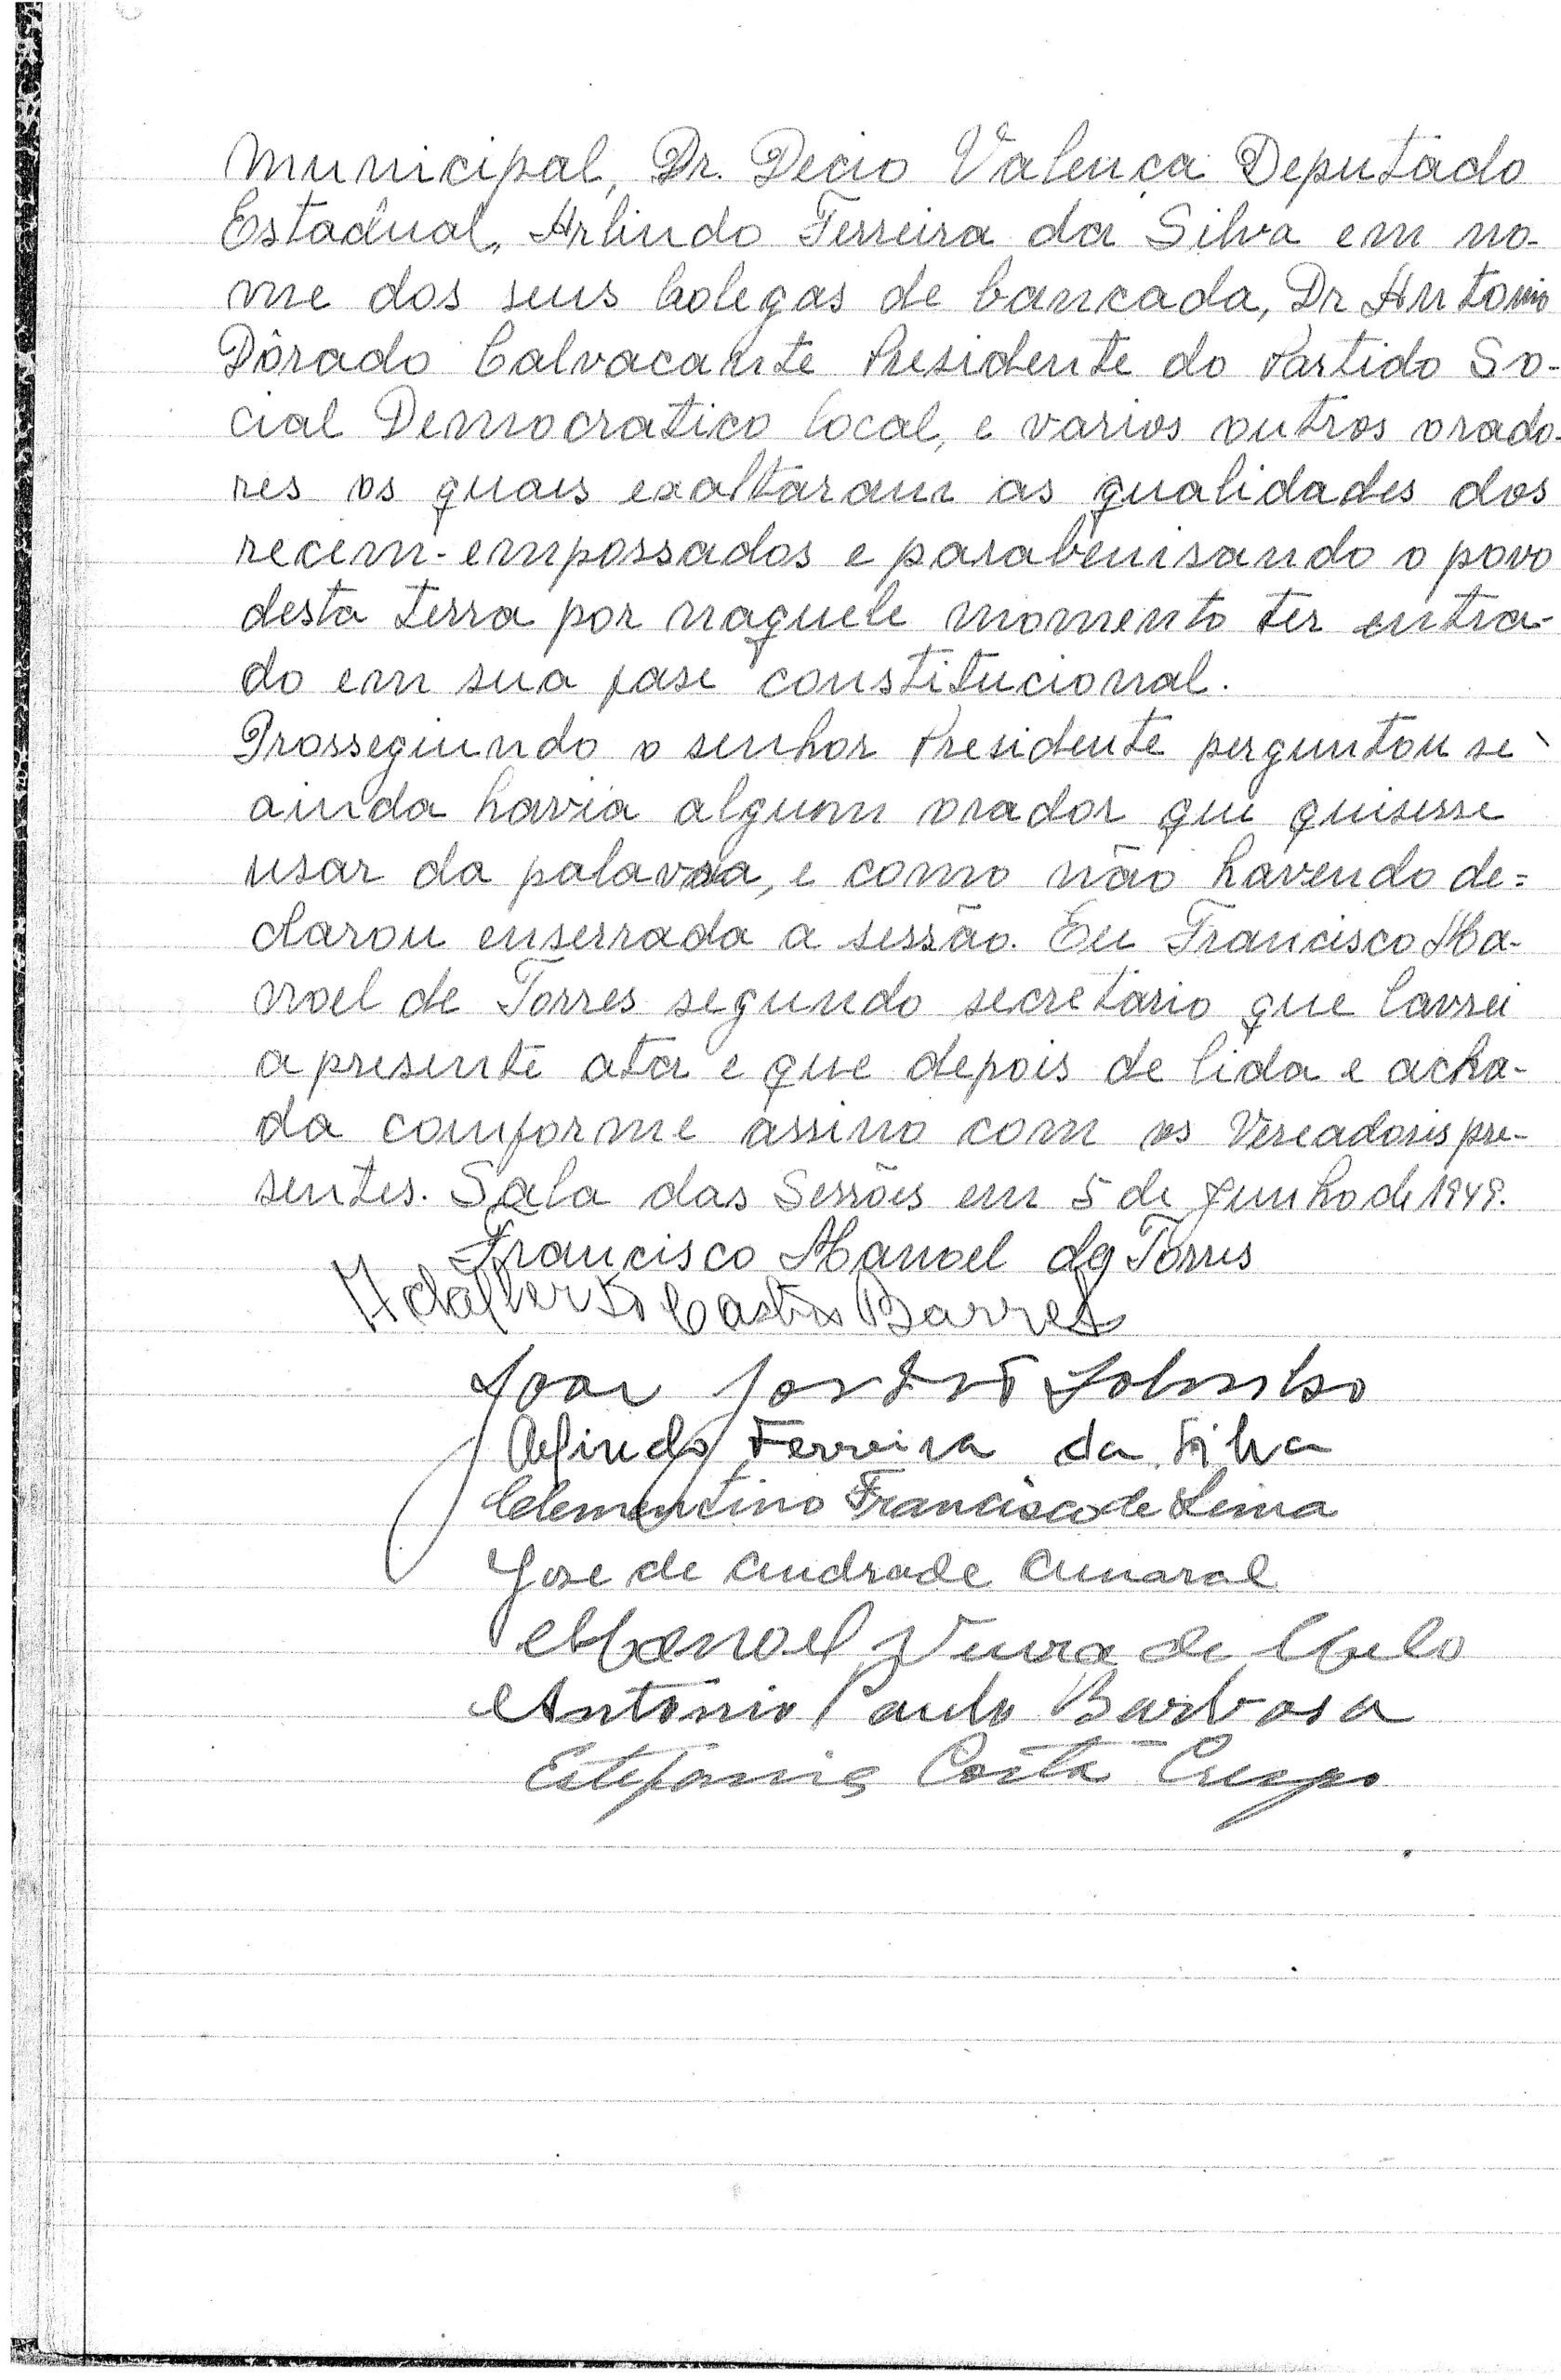 Municipal, Dr. Decio Valença Deputado
Estadual, Arlindo Ferreira da Silva em no-
me dos seus Colegas de bancada, Dr Antonio
Dôrado Calvacante Presidente do Partido So-
cial Democratico local, e varios outros orado-
res os quais exaltaram as qualidades dos
recem-empossados e parabenisando o povo
desta terra por naquele momento ter entra-
do em sua fase constitucional.
Prosseguindo o senhor Presidente perguntou se
ainda havia algum orador que quisesse
usar da palavra, e como não havendo de=
clarou enserrada a sessão. Eu Francisco Ma-
noel de Torres segundo secretario que lavrei
a presente ata e que depois de lida e acha-
da conforme assino com os Vereadores pre-
sentes. Sala das Sessões em 5 de Junho de 1949.
Francisco Manoel de Torres
Adalberto Castro Barros
Arlindo Ferreira da Silva
Clementino Francisco de Lima
Jose de Andrade Amaral
Manoel Vieira de Melo
Antônio Paulo Barbosa
Estefania Costa Crespo